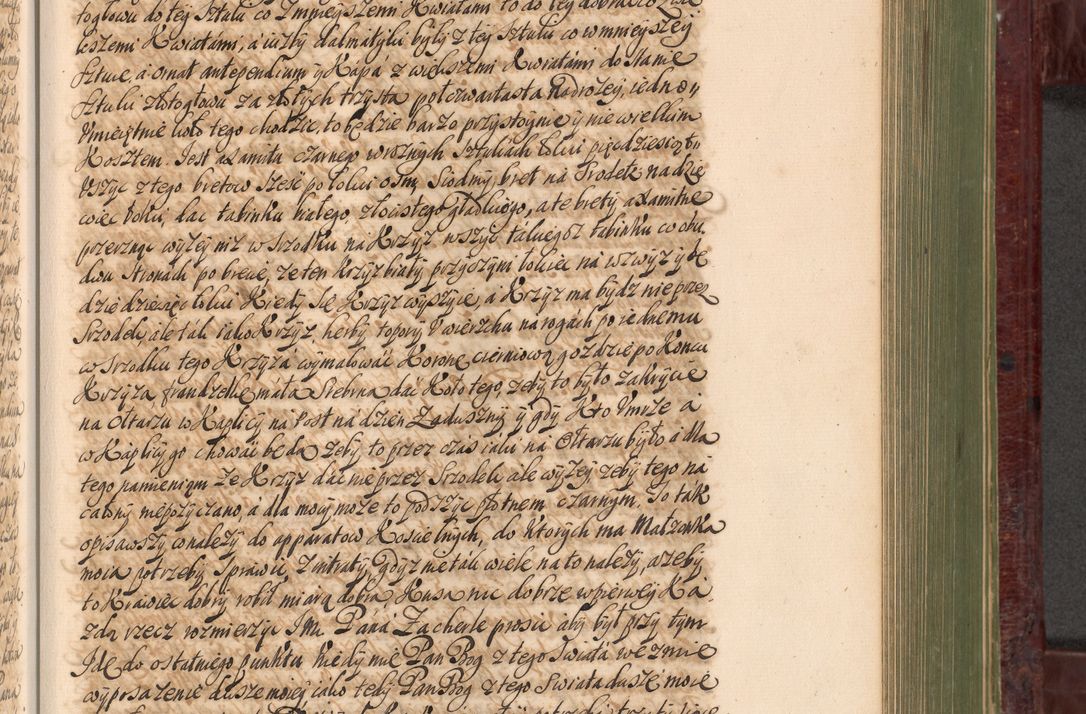 togłowu do tey Sztuki co z mnieyszemi Kwiatami to do tey dobrac
kszemi Kwiatámi, a iuszty dalmatyki były z tey Sztuki co w mnieyszey
Sztuce, a ornat antependium y Kápá z większemi Kwiatámi do Stanie
Sztuki złotogłowu za złotych trzysta połczwartasta Nadrożey, iedno y
Vmieiętnie koło tego chodzic, to będzie barzo przystoynie y niewielkim
Kosztem. Jest axamitu czarnego w roznych Sztukach łokci pięcdziesiąt
Vszyc z tego bretow szesc po łokci osmy, Siodmy bret ná Srodek nadzie
więc łokci, dac tabinku białego, złocistego gładkiego, a te brety axamitne
przerznąc wyzey niz w srzodku ná Krzyz, wszyc tákuegoz tabinku co obu
dwu Stronách po brecie, ze ten Krzyz biały przyczyni łokcie ná wzwyz y bę
dzie dziesięc łokci Kiedy Się Krzyz wyszyie, á Krzyz ma bydz nie przez
Srzodek, ale ták iáko Krzyz, herby topory Vwierzchu na rogách po iednemu
w srzodku tego Krzyzá wymalowác Koronę cierniową, gozdzie po Koncu
Krzyza frandzelkę máła Srebrną dac Koło tego, zeby to było zakrycie
na Ołtarzu w Kaplicy na Post ná dzien Zaduszny y gdy Kto Vmrze á
w Káplicy go chowác będą zeby to przez czás iáki ná Ołtarzu było á dla
tego namieniam ze Krzyz dác nie przez Srzodek ale wyzey, zeby tego ná
całony niepozyczano, á dla mocy moze to podszyc płotnem czarnym. To ták
opisawszy co nalezy do apparatow Koscielnych, do Ktorych ma Małzonka
moia potrzeby sprawic, z intraty, gdyz nie ták wiele na to nalezy, a zeby
to Krawiec dobry robił miarą dobrą, Kusa nic dobrze wpierwey Ká
zdą rzecz rozmierzyc JMci Paná Zacherle proszę aby był przy tym
Idę do ostatniego punktu Kiedy mię Pan Bog z tego Swiatá wezmie
wyprszazenie dusze moiey iáko tedy Pan Bog z tego Swiata duszę moię